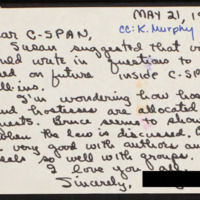 MAY 21, 19
cc: K. Murphy
ear C-SPAN,
Susan suggested that w
uld write in questions to
ed on future inside C-SP
ll-ins.
I'm wondering how hos
and hostesses are allocated
uests. Bruce seems to
when the law is discussed. C
very good with authors an
eals so well with groups.
I love you all!
Sincerely,